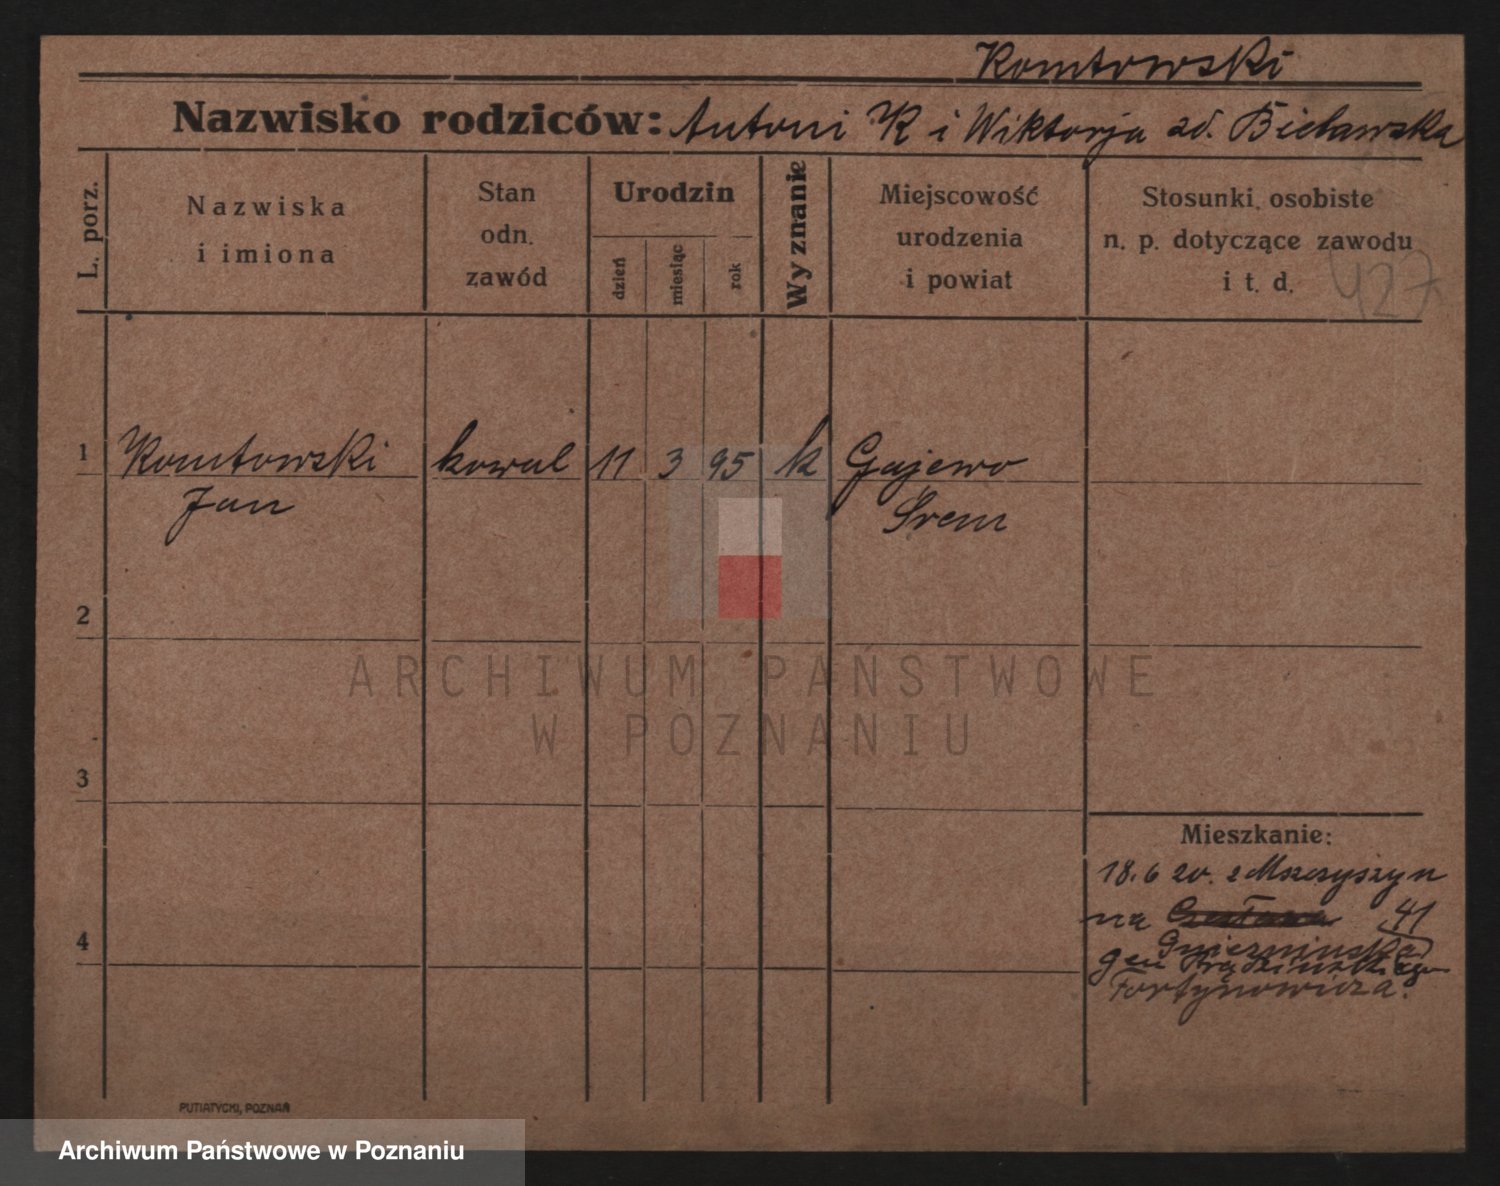 Komtowski
Nazwisko rodziców: Antoni K i Wiktorja zd. Bielawska
L. porz.
Nazwiska
i imiona
Stan
odn.
zawód
Urodzin
dzień
miesiąc
rok
Wyznanie
Miejscowość
urodzenia
i powiat
Stosunki osobiste
n. p. dotyczące zawodu
i t. d.
427
1 Komtowski kowal 11 3 95 k Gajewo
Jan Śrem
2
3
4
ARCHIWUM PAŃSTWOWE
W POZNANIU
Mieszkanie:
18.6 20. z
na 41
Gnieźnieńska
gen
Fortynowicza.
PUTIATYCKI, POZNAŃ
Archiwum Państwowe w Poznaniu